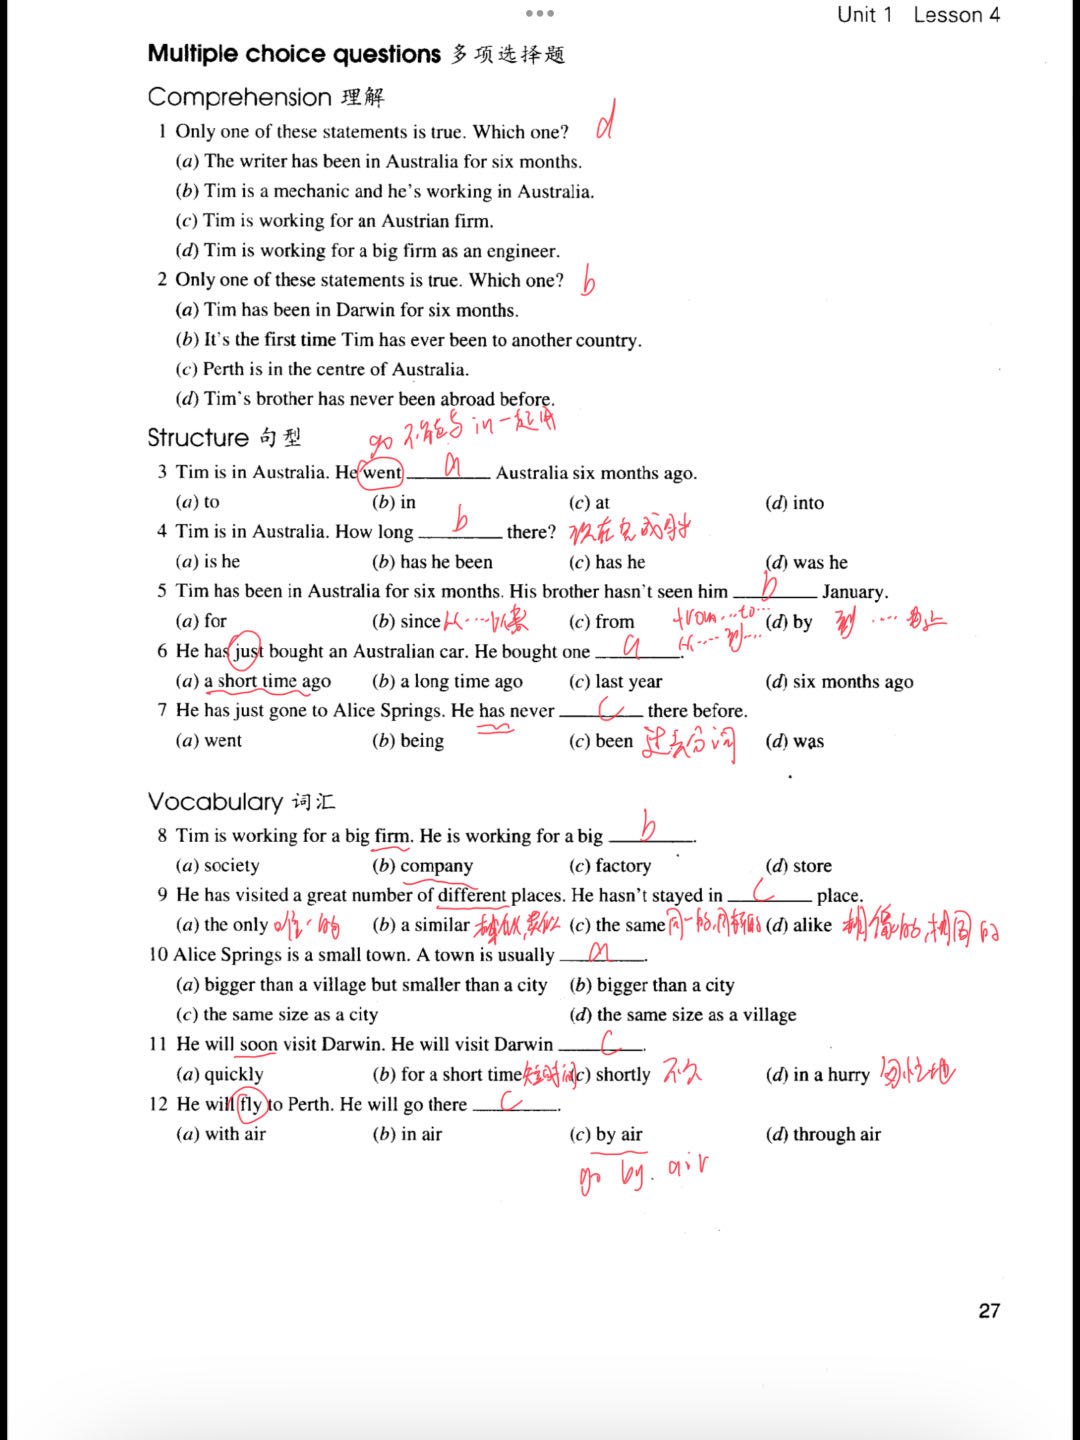 Unit 1 Lesson 4
Multiple choice questions 多项选择题
Comprehension 理解
1 Only one of these statements is true. Which one? d
(a) The writer has been in Australia for six months.
(b) Tim is a mechanic and he's working in Australia.
(c) Tim is working for an Austrian firm.
(d) Tim is working for a big firm as an engineer.
2 Only one of these statements is true. Which one? b
(a) Tim has been in Darwin for six months.
(b) It's the first time Tim has ever been to another country.
(c) Perth is in the centre of Australia.
(d) Tim's brother has never been abroad before.
go 不能与 in 一起用
Structure 句型
3 Tim is in Australia. He went a Australia six months ago.
(a) to (b) in (c) at (d) into
4 Tim is in Australia. How long b there? 现在完成时
(a) is he (b) has he been (c) has he (d) was he
5 Tim has been in Australia for six months. His brother hasn't seen him b January.
(a) for (b) since 从……以来 (c) from from...to... 从……到… (d) by 到……为止
6 He has just bought an Australian car. He bought one a.
(a) a short time ago (b) a long time ago (c) last year (d) six months ago
7 He has just gone to Alice Springs. He has never c there before.
(a) went (b) being (c) been 过去分词 (d) was
Vocabulary 词汇
8 Tim is working for a big firm. He is working for a big b.
(a) society (b) company (c) factory (d) store
9 He has visited a great number of different places. He hasn't stayed in c place.
(a) the only 唯一的 (b) a similar 类似 (c) the same 同一的,同样的 (d) alike 相像的,相同的
10 Alice Springs is a small town. A town is usually a.
(a) bigger than a village but smaller than a city (b) bigger than a city
(c) the same size as a city (d) the same size as a village
11 He will soon visit Darwin. He will visit Darwin c.
(a) quickly (b) for a short time 短时间 (c) shortly 不久 (d) in a hurry 匆忙地
12 He will fly to Perth. He will go there c.
(a) with air (b) in air (c) by air (d) through air
go by air
27